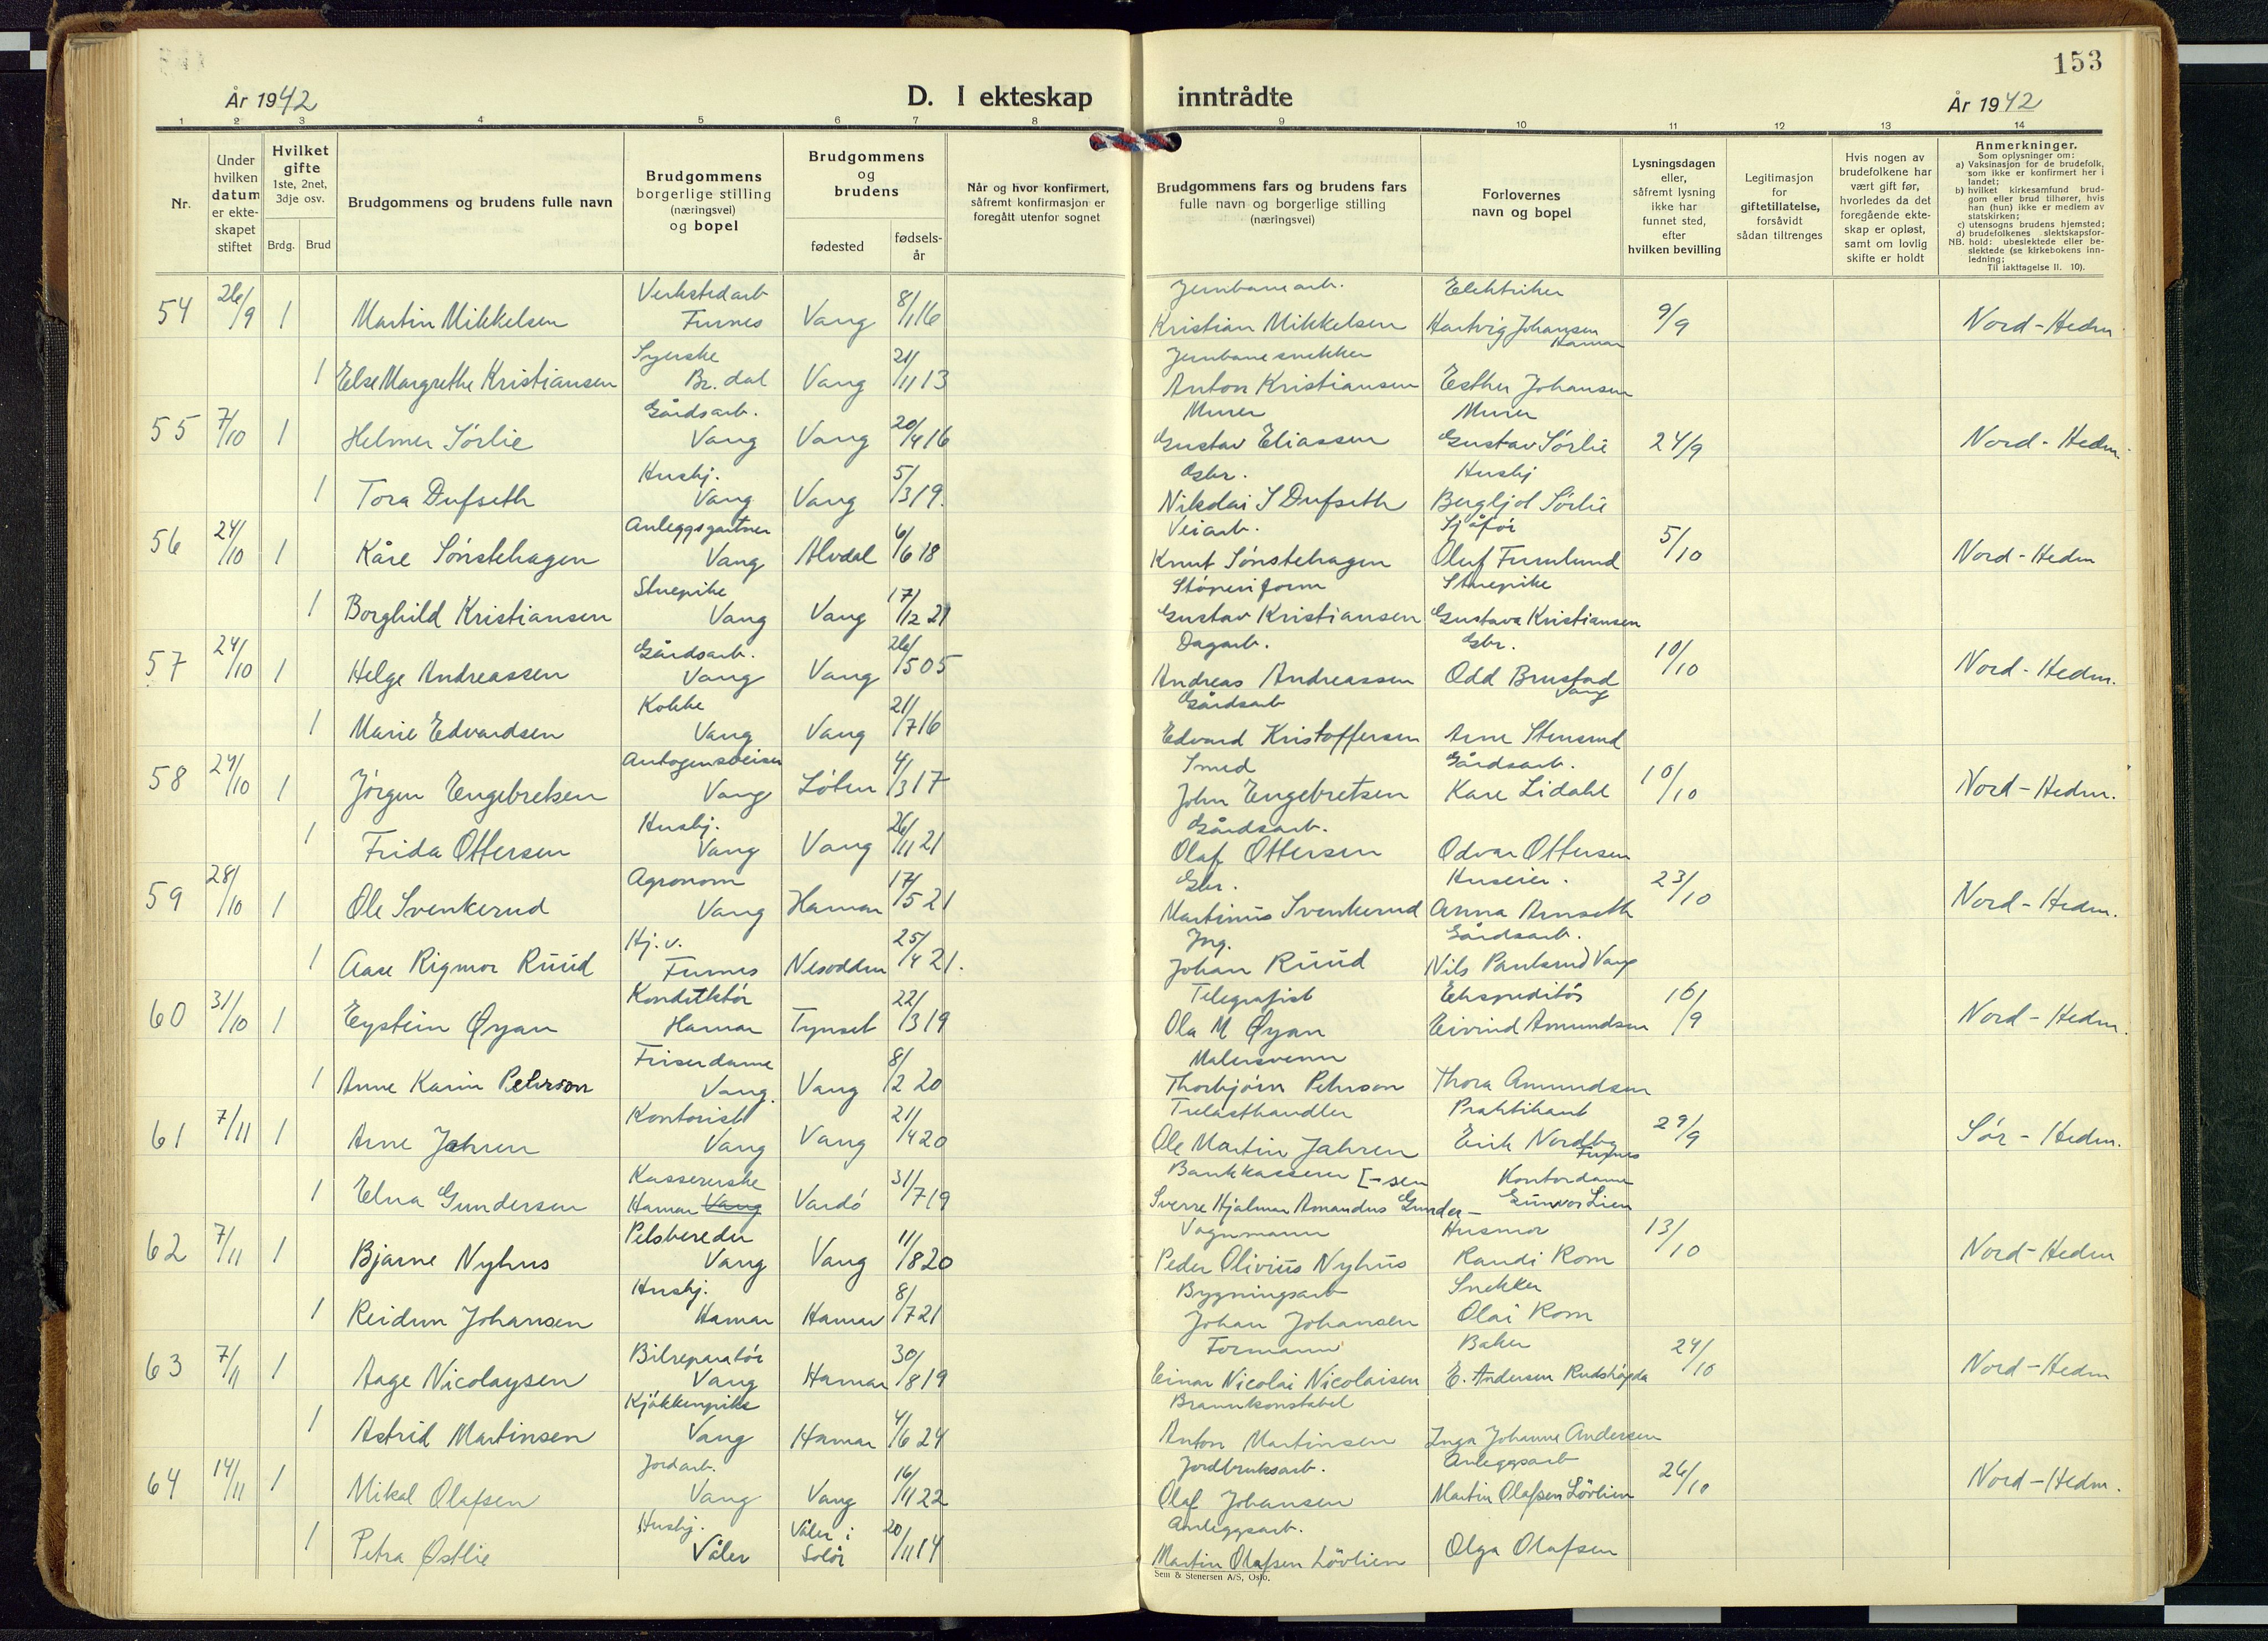 153
År 1942
D. I ekteskap inntrådte
År 1942
1 2 3 4 5 6 7 8 9 10 11 12 13 14
Nr.
Under hvilken datum er ekteskapet stiftet
Hvilket gifte 1ste, 2net, 3dje osv.
Brdg. Brud
Brudgommens og brudens fulle navn
Brudgommens borgerlige stilling (næringsvei) og bopel
Brudgommens og brudens
fødested
fødselsår
Når og hvor konfirmert, såfremt konfirmasjon er foregått utenfor sognet
Brudgommens fars og brudens fars fulle navn og borgerlige stilling (næringsvei)
Forlovernes navn og bopel
Lysningsdagen eller, såfremt lysning ikke har funnet sted, efter hvilken bevilling
Legitimasjon for giftetillatelse, forsåvidt sådan tiltrenges
Hvis nogen av brudefolkene har vært gift før, hvorledes da det foregående ekteskap er opløst, samt om lovlig skifte er holdt
Anmerkninger.
Som oplysninger om:
a) Vaksinasjon for de brudefolk, som ikke er konfirmert her i landet;
b) hvilket kirkesamfund brudgom eller brud tilhører, hvis han (hun) ikke er medlem av statskirken;
c) utensogns brudens hjemsted;
d) brudefolkenes slektskapsforhold: ubeslektede eller beslektede (se kirkebokens innledning;
NB.
Til iakttagelse II. 10).
Verkstedarb Jernbanearb. Elektriker
54 26/9 1 Martin Mikkelsen Furnes Vang 8/1 16 Kristian Mikkelsen Hartvig Johansen Hamar 9/9 Nord-Hedm
Syerske Jernbanesnekker
1 Else Margrethe Kristiansen Br. dal Vang 21/11 13 Anton Kristiansen Esther Johansen
Gårdsarb. Murer Murer
55 7/10 1 Helmer Sørlie Vang Vang 20/4 16 Gustav Eliassen Gustav Sørlie 24/9 Nord-Hedm.
Husbj. Gbr. Husbj
1 Tora Dufseth Vang Vang 5/3 19. Nikolai S Dufseth Bergljot Sørlie
Anleggsgartner Veiarb. Sjåfør
56 24/10 1 Kåre Sønstehagen Vang Alvdal 6/6 18 Knut Sønstehagen Oluf Furulund 5/10 Nord-Hedm
Stuepike Støperiform Stuepike
1 Borghild Kristiansen Vang Vang 17/12 21 Gustav Kristiansen Gustava Kristiansen
Gårdsarb. Dagarb. Gbr.
57 24/10 1 Helge Andreassen Vang Vang 26/5 05 Andreas Andreassen Odd Brustad Vang 10/10 Nord-Hedm.
Kokke Gårdsarb
1 Marie Edvardsen Vang Vang 21/7 16 Edvard Kristoffersen Arne Stensrud
Autogensveiser Smed Gårdsarb.
58 24/10 1 Jørgen Engebretsen Vang Løten 4/3 17 John Engebretsen Kare Lidahl 10/10 Nord-Hedm.
Husbj. Gårdsarb.
1 Frida Ottersen Vang Vang 26/11 21 Olaf Ottersen Odvar Ottersen
Agronom Gbr. Huseier.
59 28/10 1 Ole Svenkerud Vang Hamar 17/5 21 Martinus Svenkerud Anna Arnseth 23/10 Nord-Hedm.
Hj. v. Ing. Gårdsarb.
1 Aase Rigmor Ruud Furnes Nesodden 25/4 21. Johan Ruud Nils Paulsrud Vang
Konduktør Telegrafist Ekspeditør
60 31/10 1 Eystein Øyan Hamar Tynset 22/3 19 Ola M Øyan Eivind Amundsen 16/9 Nord-Hedm.
Friserdame Malersvenn
1 Anne Karin Peterson Vang. Vang 8/2 20 Thorbjørn Peterson Thora Amundsen
Kontorist Trelasthandler Praktikant
61 7/11 1 Arne Jahren Vang Vang 21/4 20 Ole Martin Jahren Erik Nordby Furnes 29/9 Sør-Hedm.
Kassererske Bankkasserer [-sen Kontordame
1 Elna Gundersen Hamar Vang Vardø 31/7 19 Sverre Hjalmar Amandus Gunder- Gunvor Lien
Pelsbereder Vognmann Husmor
62 7/11 1 Bjarne Nyhus Vang Vang 11/8 20 Peder Olivius Nyhus Randi Rom 13/10 Nord-Hedm
Husbj. Bygningsarb Snekker
1 Reidun Johansen Hamar Hamar 8/7 21 Johan Johansen Olai Rom
Bilreparatør Formann Baker
63 7/11 1 Aage Nicolaysen Vang Hamar 30/8 19 Einar Nicolai Nicolaisen E. Andersen Rudshøgda 24/10 Nord-Hedm
Kjøkkenpike Brannkonstabel
1 Astrid Martinsen Vang Hamar 4/6 24 Anton Martinsen Inga Johanne Andersen
Jordarb. Jordbruksarb. Anleggsarb
64 14/11 1 Mikal Olafsen Vang Vang 16/11 22 Olaf Johansen Martin Olafsen Løvlien 26/10 Nord-Hedm.
Husbj. Anleggsarb.
1 Petra Østlie Våler Våler i Solør 20/11 14 Martin Olafsen Løvlien Olga Olafsen
Sem & Stenersen A/S, Oslo.